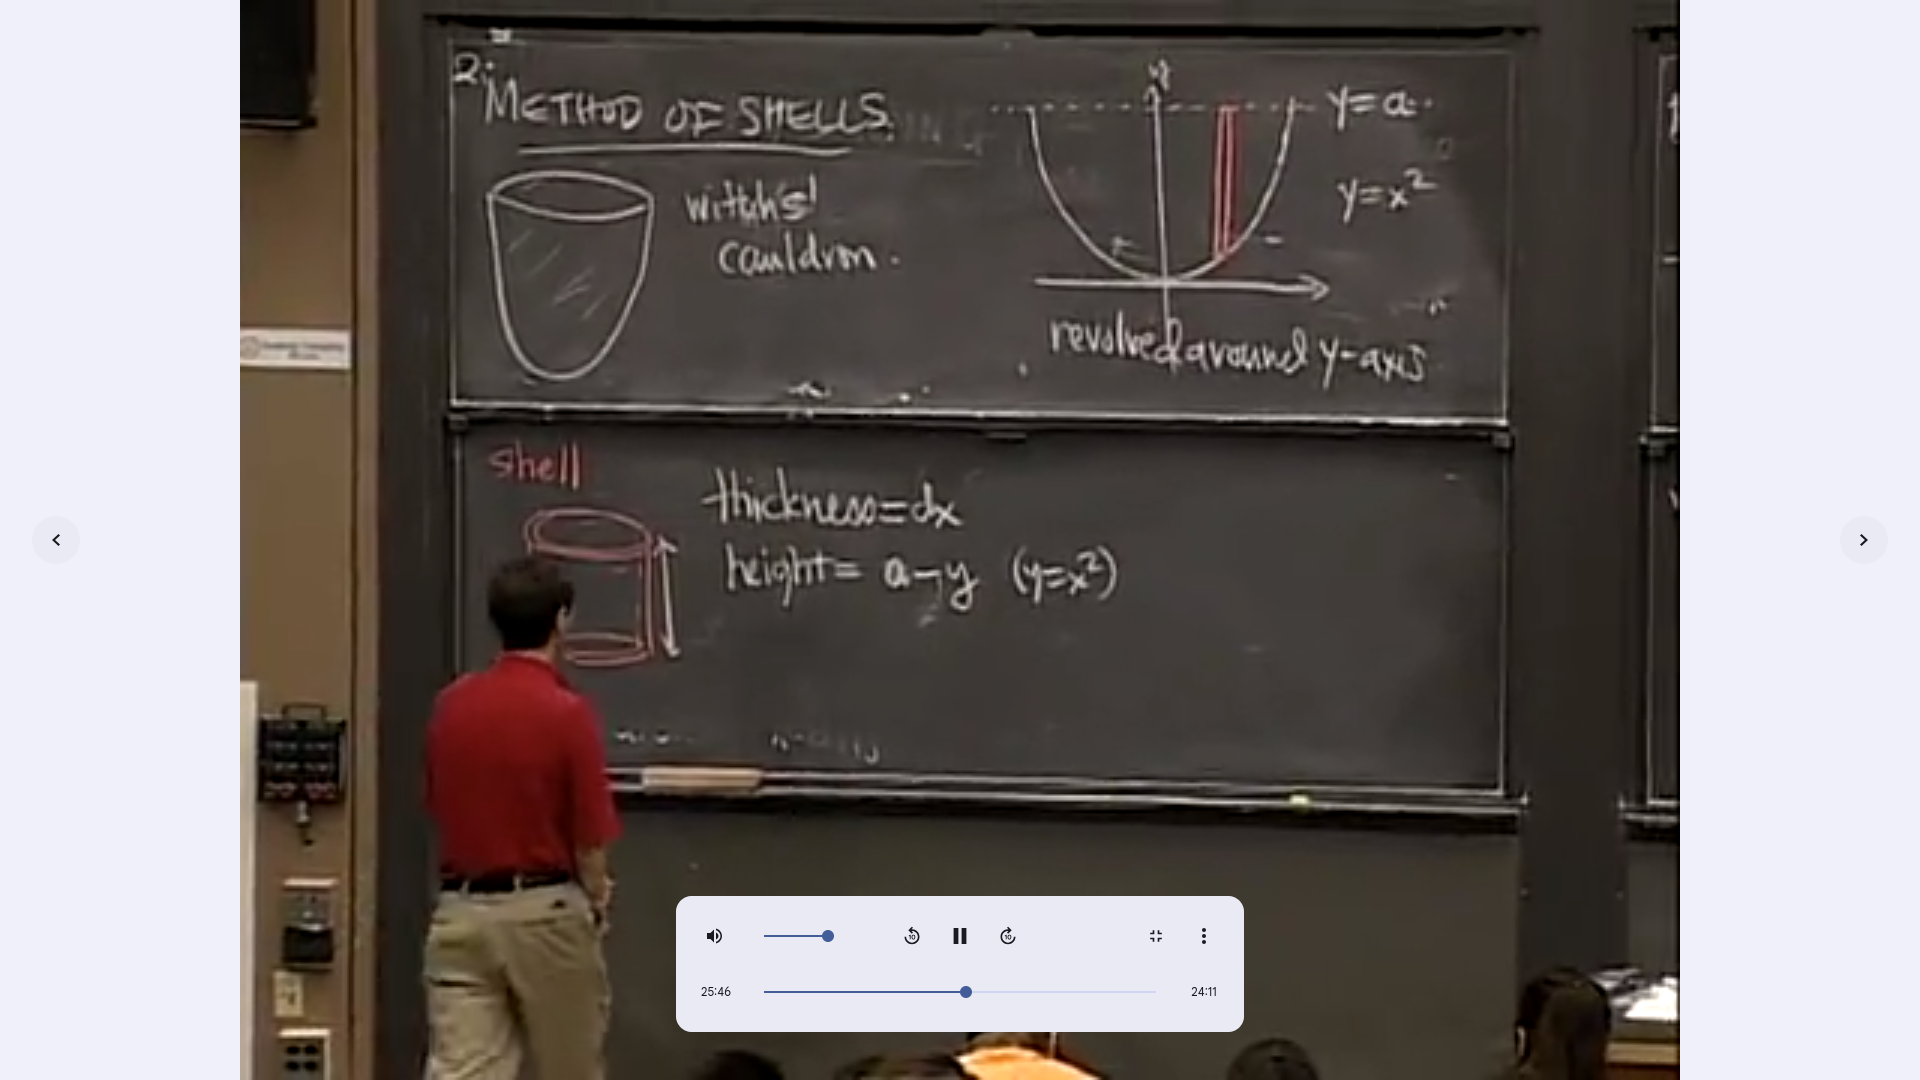 2.
METHOD OF SHELLS.
witch's
cauldron.
y
y=a.
y=x²
revolved around y-axis
shell
thickness=dx
height= a-y (y=x²)
10
10
25:46
24:11